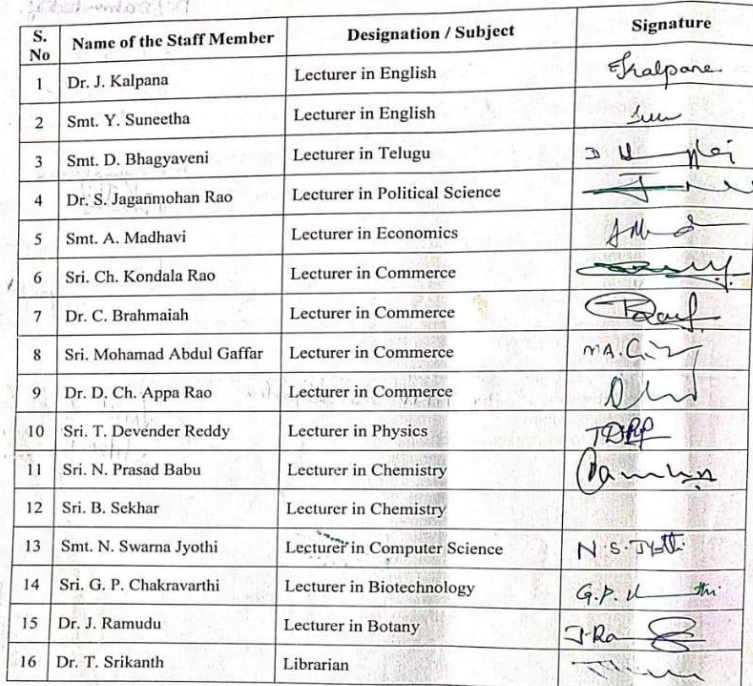 S. No | Name of the Staff Member | Designation / Subject | Signature
1 | Dr. J. Kalpana | Lecturer in English | Kalpana
2 | Smt. Y. Suneetha | Lecturer in English
3 | Smt. D. Bhagyaveni | Lecturer in Telugu
4 | Dr. S. Jaganmohan Rao | Lecturer in Political Science
5 | Smt. A. Madhavi | Lecturer in Economics
6 | Sri. Ch. Kondala Rao | Lecturer in Commerce
7 | Dr. C. Brahmaiah | Lecturer in Commerce
8 | Sri. Mohamad Abdul Gaffar | Lecturer in Commerce
9 | Dr. D. Ch. Appa Rao | Lecturer in Commerce
10 | Sri. T. Devender Reddy | Lecturer in Physics
11 | Sri. N. Prasad Babu | Lecturer in Chemistry
12 | Sri. B. Sekhar | Lecturer in Chemistry
13 | Smt. N. Swarna Jyothi | Lecturer in Computer Science | N.S. Jyothi
14 | Sri. G. P. Chakravarthi | Lecturer in Biotechnology | G.P.
15 | Dr. J. Ramudu | Lecturer in Botany | J. Ra
16 | Dr. T. Srikanth | Librarian